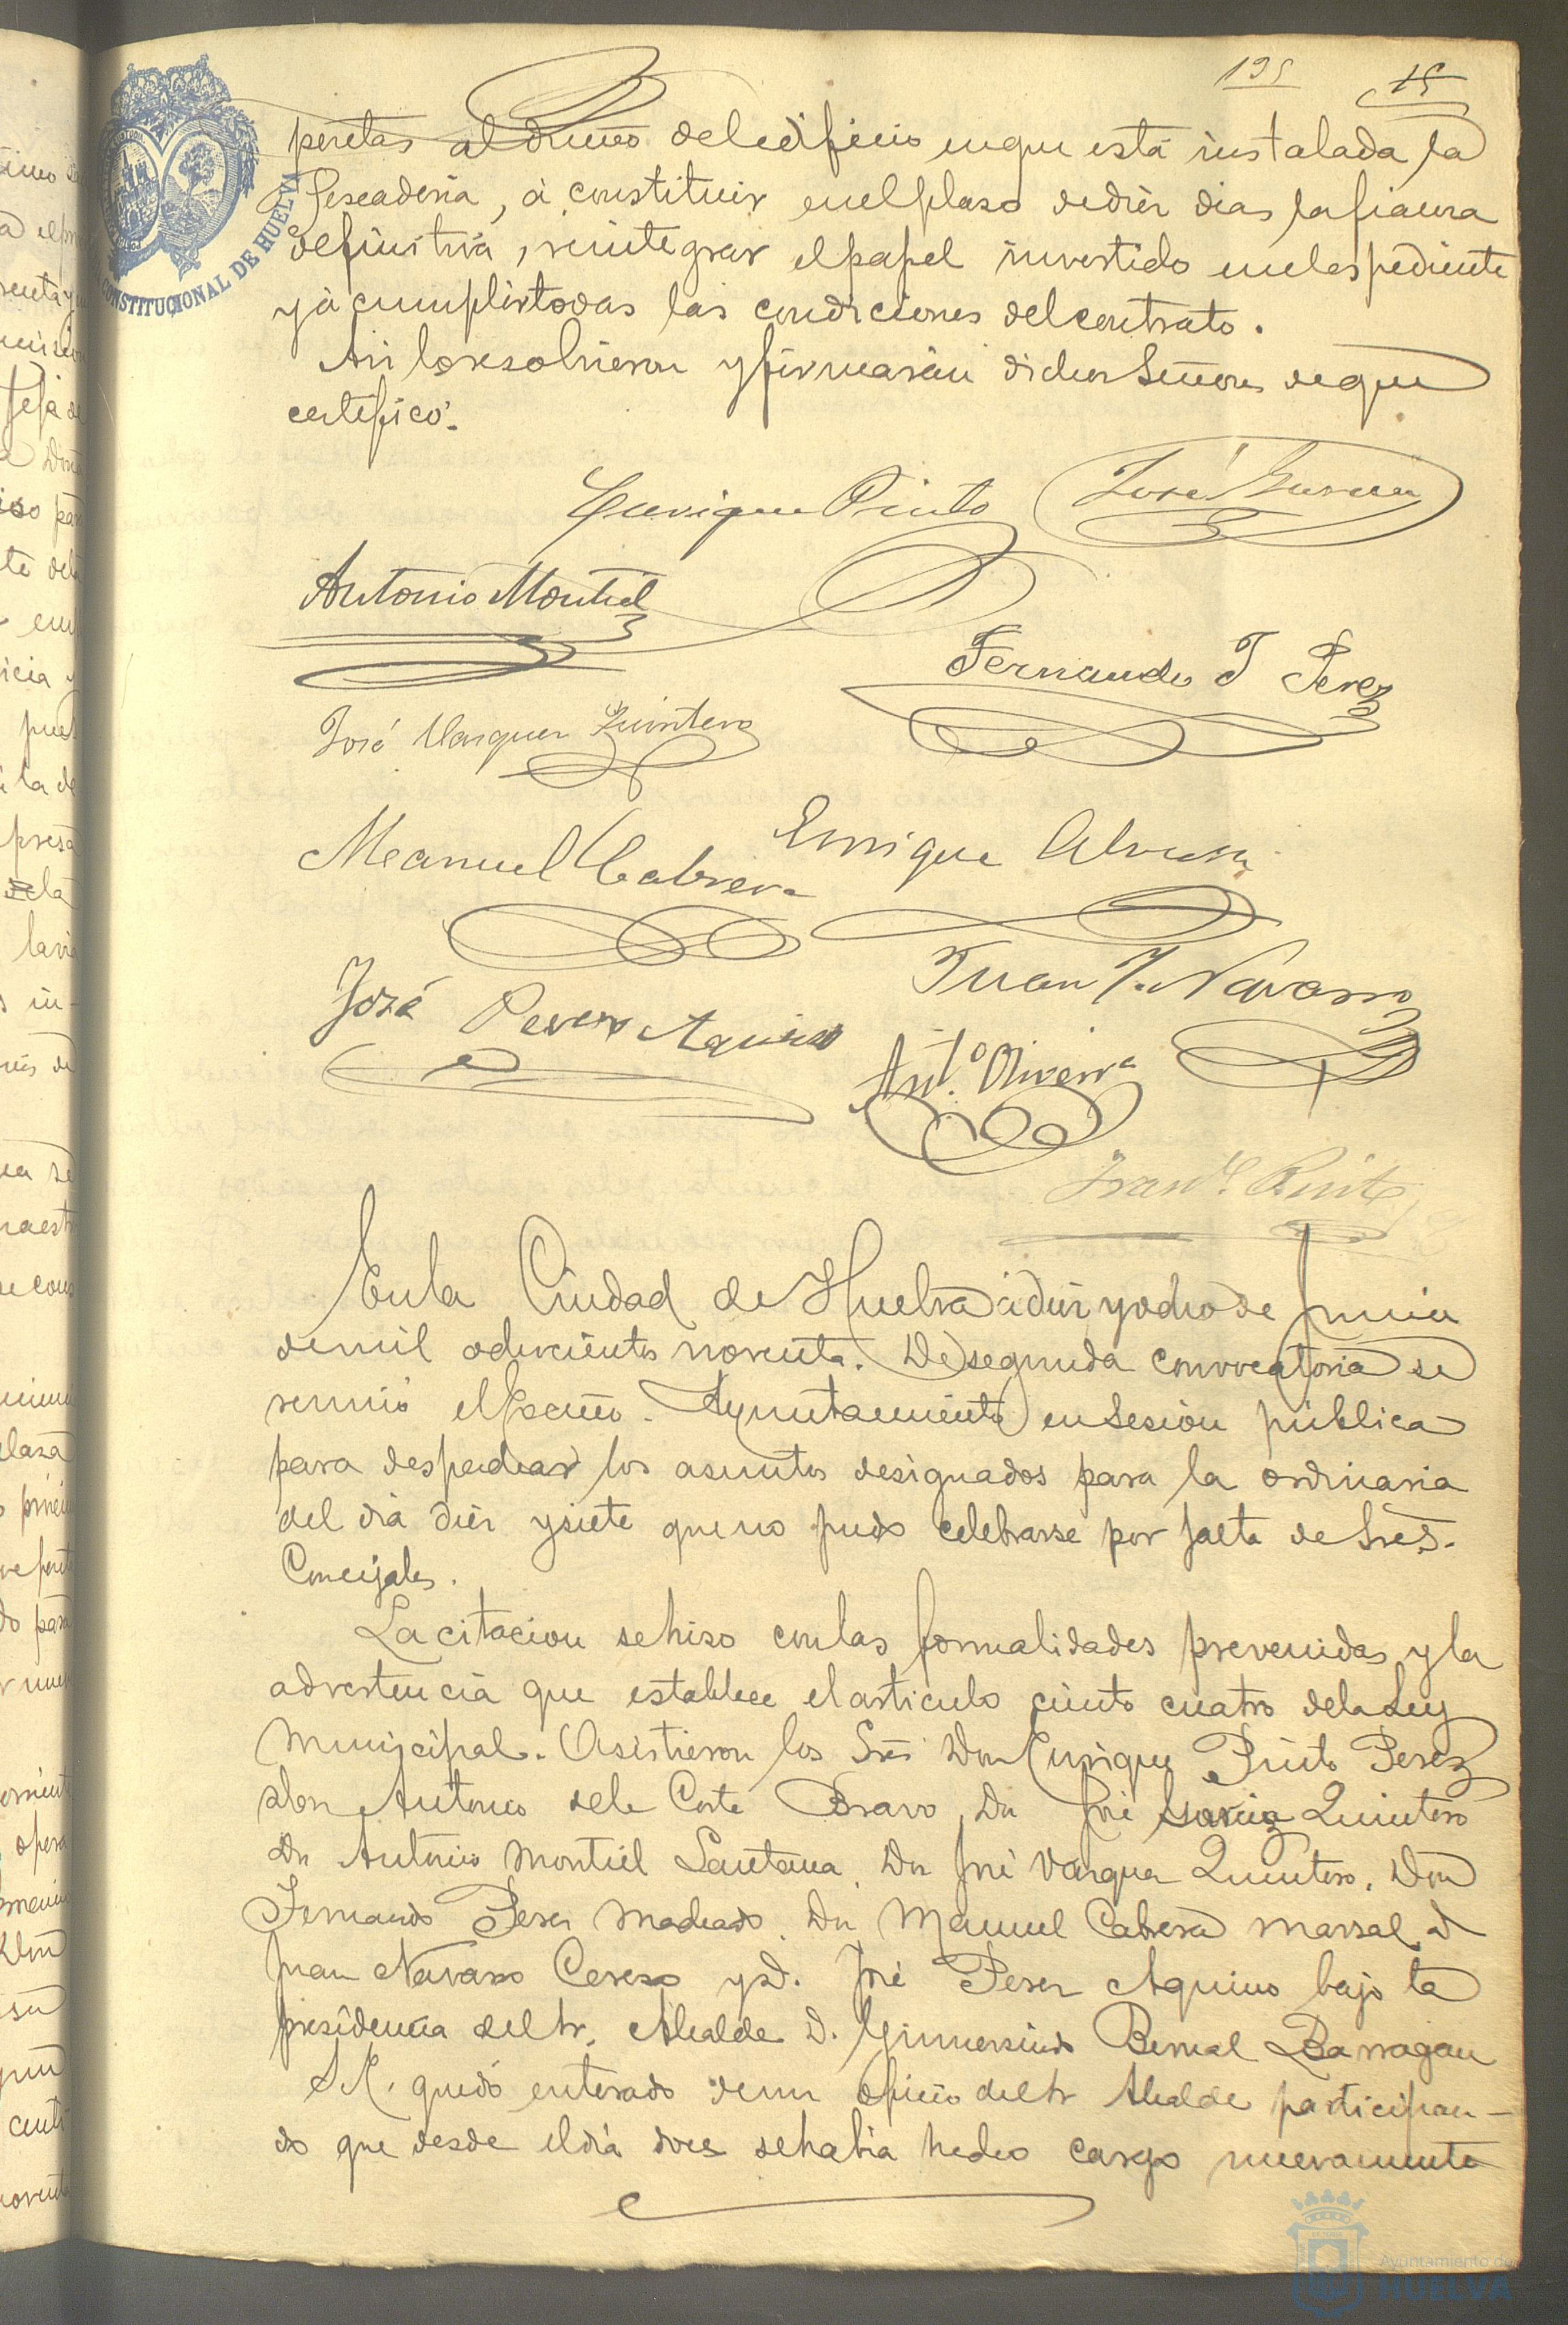 195 15
pesetas al dueño del edificio en que está instalada la
Pescadería, á constituir en el plaso de diez dias la fianza
definitiva, reintegrar el papel invertido en el espediente
y á cumplir todas las condiciones del contrato.
Asi lo resolvieron y firmarán dichos Señores de que
certifico.
Enrique Pinto José García
Antonio Montiel
Fernando T Perez
José Vazquez Quintero
Manuel Cabrera Enrique
José Perez Aquino Juan J. Navarro
Ant.º Oliveira
Fran.co Pinto
En la Ciudad de Huelva á diez y ocho de Junio
de mil ochocientos noventa. De segunda convocatoria se
reunió el Excmo. Ayuntamiento en Sesion pública
para despachar los asuntos designados para la ordinaria
del dia diez y siete que no pudo celebrarse por falta de Sres.
Concejales.
La citacion se hizo con las formalidades prevenidas y la
advertencia que establece el articulo ciento cuatro de la Ley
Municipal. Asistieron los Sres Don Enrique Pinto Perez
don Antonio de la Corte Bravo, Dn José Garcia Quintero
Dn Antonio Montiel Santana, Dn José Vazquez Quintero, Don
Fernando Perez Machado, Dn Manuel Cabrera Marsal, D
Juan Navarro Cerezo y D. José Perez Aquino bajo la
presidencia del Sr. Alcalde D. Gumersindo Bernal Barragan
S.E. quedó enterado de un oficio del Sr Alcalde participan-
do que desde el dia doce se habia hecho cargo nuevamente
CONSTITUCIONAL DE HUELVA
Ayuntamiento de
HUELVA